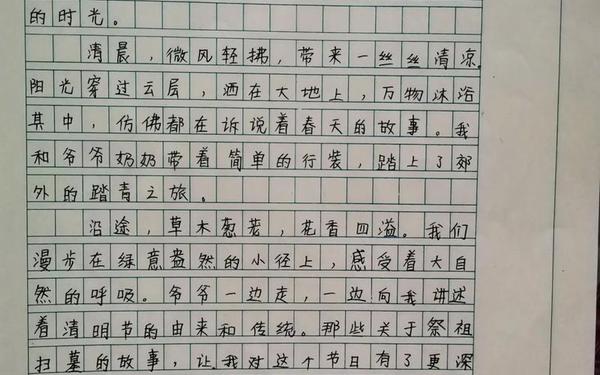 的时光。
清晨，微风轻拂，带来一丝丝清凉。
阳光穿过云层，洒在大地上，万物沐浴
其中，仿佛都在诉说着春天的故事。我
和爷爷奶奶带着简单的行装，踏上了郊
外的踏青之旅。
沿途，草木葱茏，花香四溢。我们
漫步在绿意盎然的小径上，感受着大自
然的呼吸。爷爷一边走，一边向我讲述
着清明节的由来和传统。那些关于祭祖
扫墓的故事，让我对这个节日有了更深